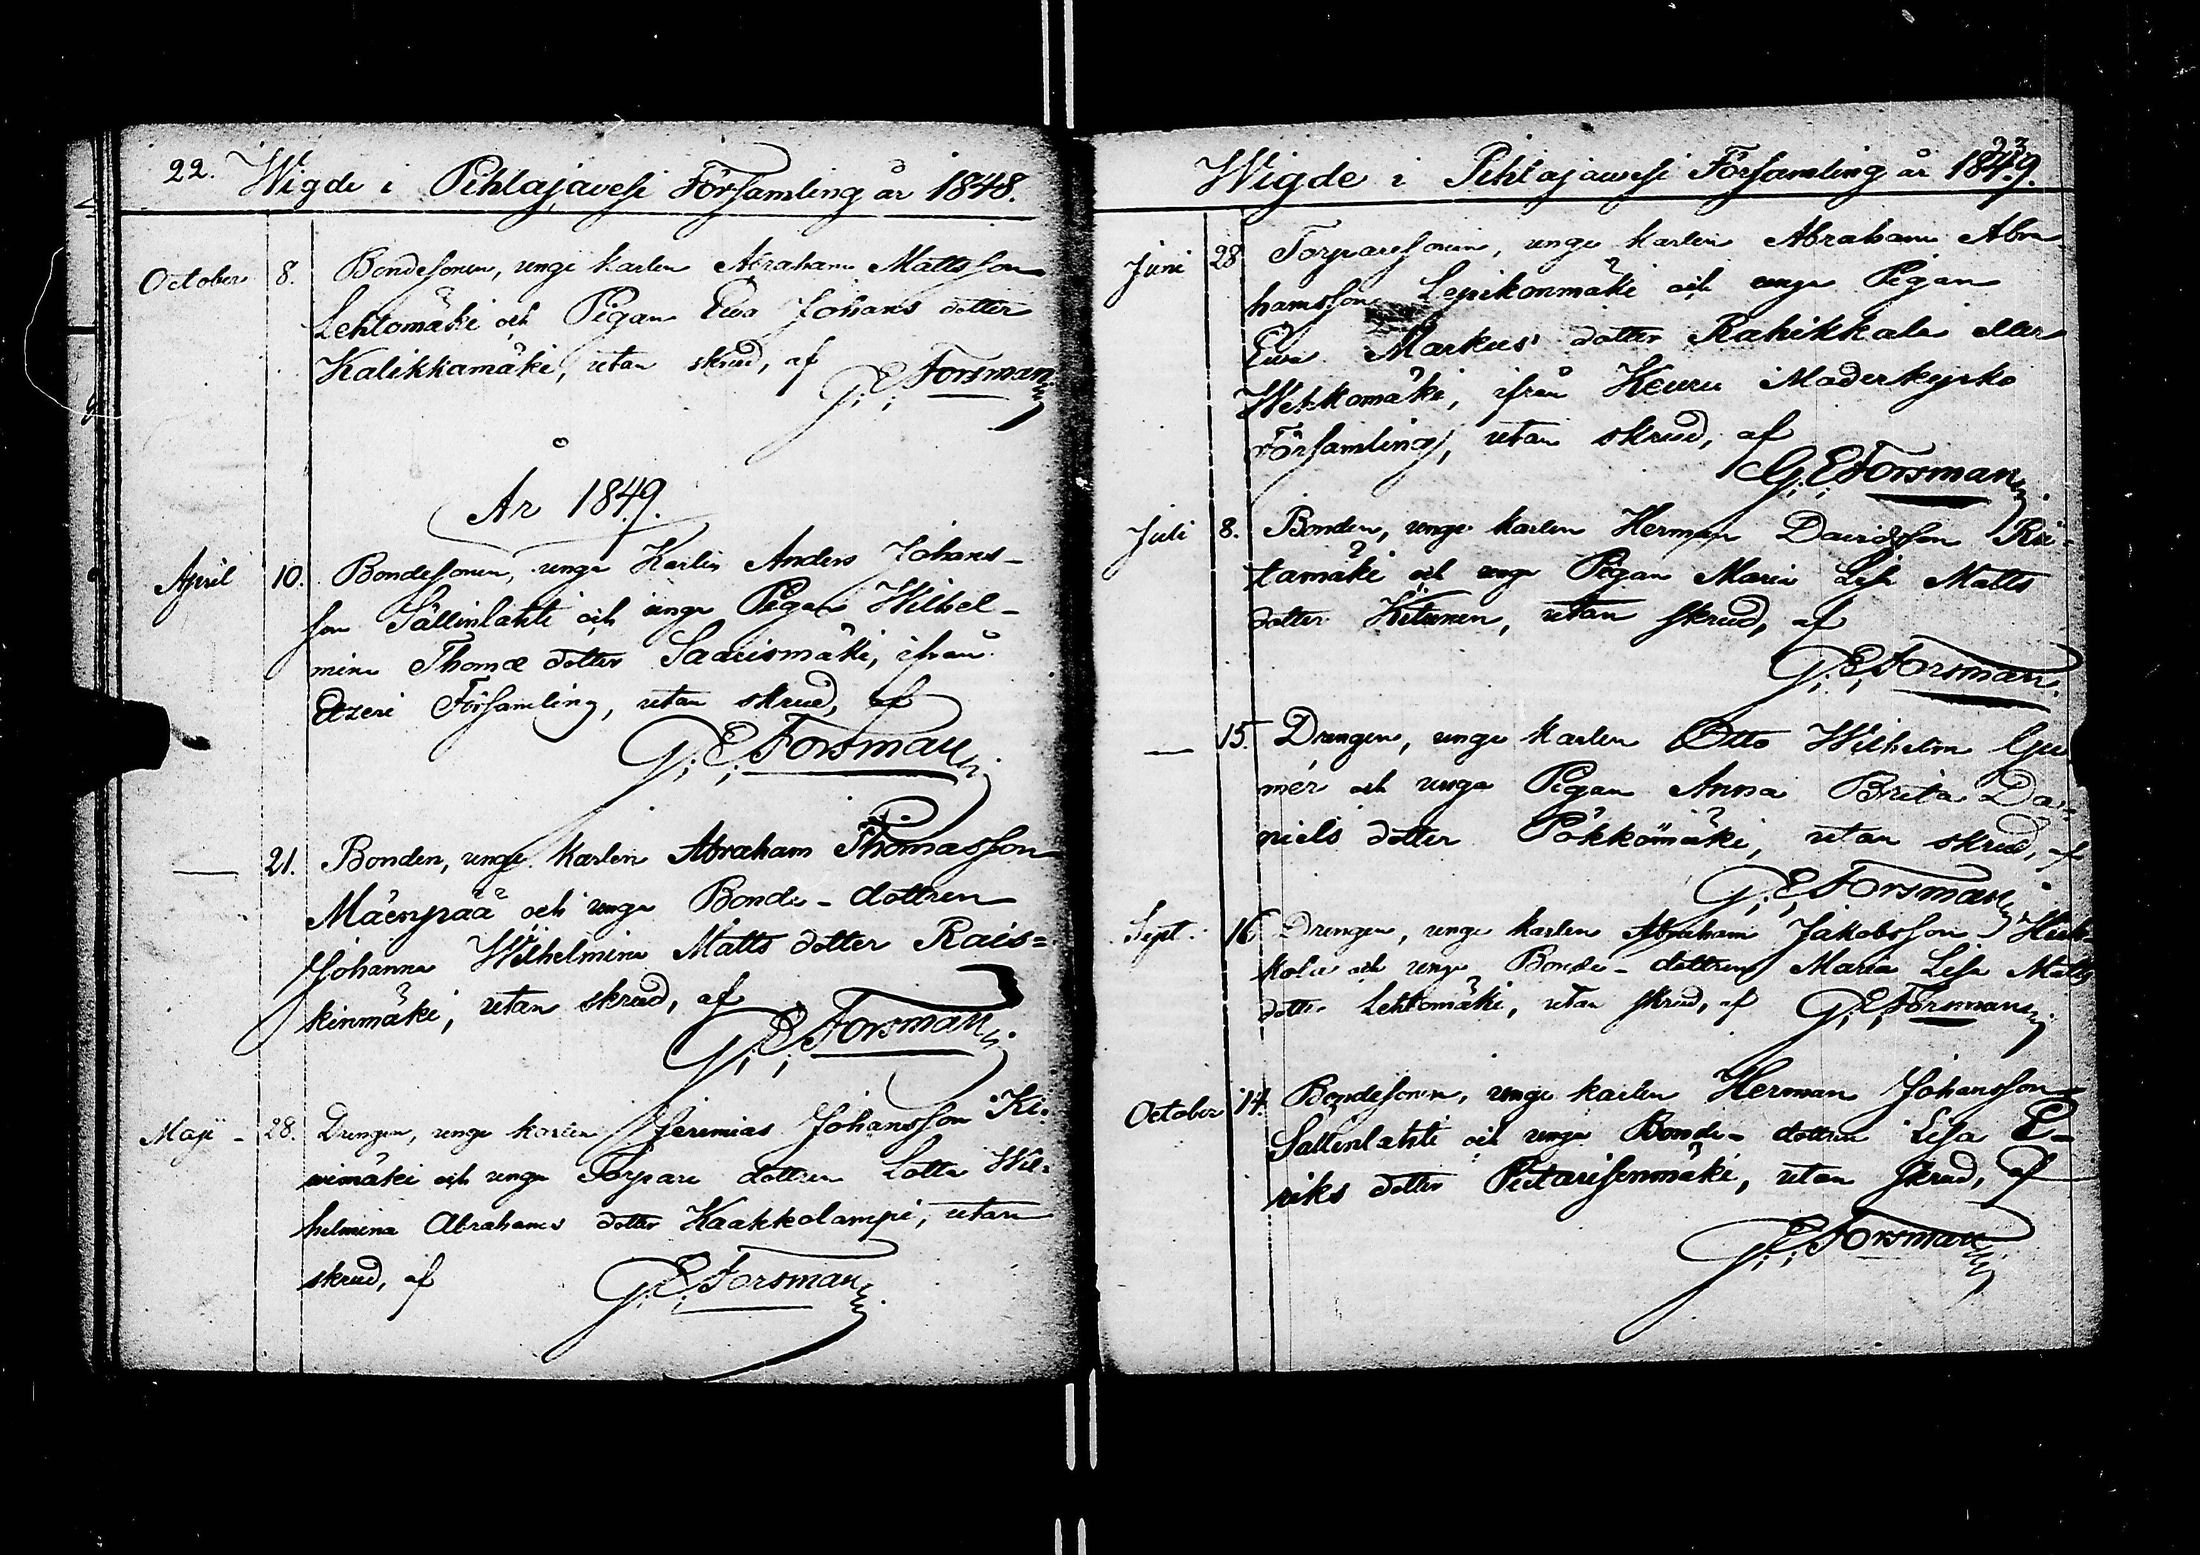 22. Wigde i Pihlajavesi Församling år 1848.
October 8. Bondesonen, unge karlen Abraham Mattsson
Lehtomäki och Pigan Ewa Johans dotter
Kalikkamäki, utan skrud, af
G. E. Forsman
År 1849.
April 10. Bondesonen, unge Karlen Anders Johans-
son Sällinlahti och unga Pigan Wilhel-
mina Thomæ dotter Saarismäki, ifrån
Etzeri Församling, utan skrud, af
G. E. Forsman
— 21. Bonden, unge karlen Abraham Thomasson
Mäenpää och unga Bonde-dottren
Johanna Wilhelmina Matts dotter Rais=
kinmäki, utan skrud, af
G. E. Forsman
Maji - 28. Drengen, unge karlen Jeremias Johansson Ki-
wimäki och unga Torpare dottren Lotta Wil=
helmina Abrahams dotter Kaakkolampi, utan
skrud, af
G. E. Forsman
23
Wigde i Pihlajawesi Församling år 1849.
Juni 28 Torparesonen, unge karlen Abraham Abra
hamsson Lepikonmäki och unga Pigan
Ewa Markus dotter Rahikkala eller
Wehkomäki, ifrån Keuru Moderkyrko
Församling, utan skrud, af
G. E. Forsman
Juli 8. Bonden, unge karlen Herman Davidsson Rii-
tamäki och unga Pigan Maria Lisa Matts
dotter Kitunen, utan skrud, af
G. E. Forsman.
— 15. Drengen, unge karlen Otto Wilhelm
mér och unga Pigan Anna Brita Da-
niels dotter Pökkömäki, utan skrud, af
G. E. Forsman
Sept. 16 Drengen, unge karlen Abraham Jakobsson
kola och unga Bonde-dottren Maria Lisa Matts
dotter Lehtomäki, utan skrud, af G. E. Forsman
October 14. Bondesonen, unge karlen Herman Johansson
Sällinlahti och unga Bonde-dottren Lisa E-
riks dotter Pietarisenmäki, utan skrud, af
G. E. Forsman